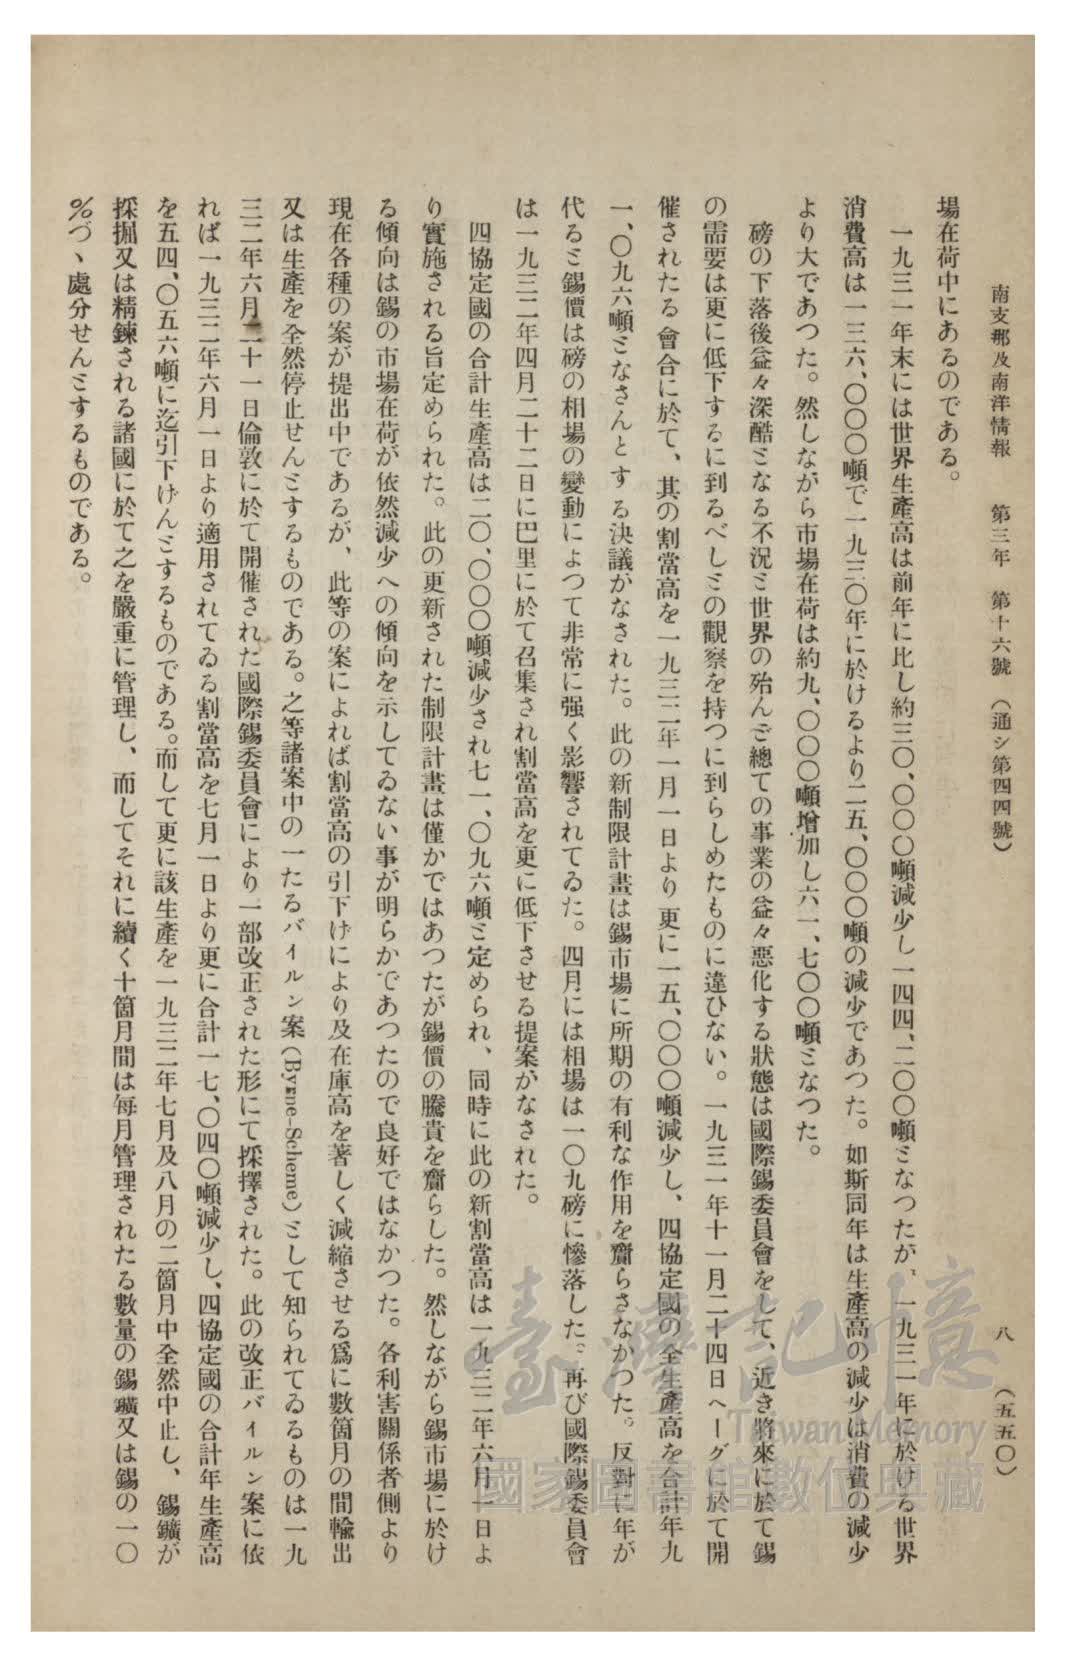 南支那及南洋情報　第三年　第十六號　（通シ第四四號）　八　（五五〇）
場在荷中にあるのである。
一九三一年末には世界生產高は前年に比し約三〇、〇〇〇噸減少し一四四、二〇〇噸ミなつたが、一九三一年に於ける世界
消費高は一三六、〇〇〇噸で一九三〇年に於けるより二五、〇〇〇噸の減少であつた。如斯同年は生產高の減少は消費の減少
より大であつた。然しながら市場在荷は約九、〇〇〇噸增加し六一、七〇〇噸ミなつた。
磅の下落後益々深酷ミなる不況ミ世界の殆んど總ての事業の益々惡化する狀態は國際錫委員會をして、近き將來に於て錫
の需要は更に低下するに到るべしミの觀察を持つに到らしめたものに違ひない。一九三一年十一月二十四日ヘーグに於て開
催されたる會合に於て、其の割當高を一九三二年一月一日より更に一五、〇〇〇噸減少し、四協定國の全生產高を合計年九
一、〇九六噸ミなさんとする決議がなされた。此の新制限計畫は錫市場に所期の有利な作用を齎らさなかつた。反對に年が
代るミ錫價は磅の相場の變動によつて非常に强く影響されてゐた。四月には相場は一〇九磅に慘落した。再び國際錫委員會
は一九三二年四月二十二日に巴里に於て召集され割當高を更に低下させる提案がなされた。
四協定國の合計生產高は二〇、〇〇〇噸減少され七一、〇九六噸ミ定められ、同時に此の新割當高は一九三二年六月一日よ
り實施される旨定められた。此の更新された制限計畫は僅かではあつたが錫價の騰貴を齎らした。然しながら錫市場に於け
る傾向は錫の市場在荷が依然減少への傾向を示してゐない事が明らかであつたので良好ではなかつた。各利害關係者側より
現在各種の案が提出中であるが、此等の案によれば割當高の引下げにより及在庫高を著しく減縮させる爲に數箇月の間輸出
又は生產を全然停止せんミするものである。之等諸案中の一たるバイルン案（Byrne-Scheme）ミして知られてゐるものは一九
三二年六月二十一日倫敦に於て開催された國際錫委員會により一部改正された形にて採擇された。此の改正バイルン案に依
れば一九三二年六月一日より適用されてゐる割當高を七月一日より更に合計一七、〇四〇噸減少し、四協定國の合計年生產高
を五四、〇五六噸に迄引下げんミするものである。而して更に該生產を一九三二年七月及八月の二箇月中全然中止し、錫鑛が
採掘又は精鍊される諸國に於て之を嚴重に管理し、而してそれに續く十箇月間は每月管理されたる數量の錫鑛又は錫の一〇
％づゝ處分せんミするものである。
臺灣記憶
Taiwan Memory
國家圖書館數位典藏